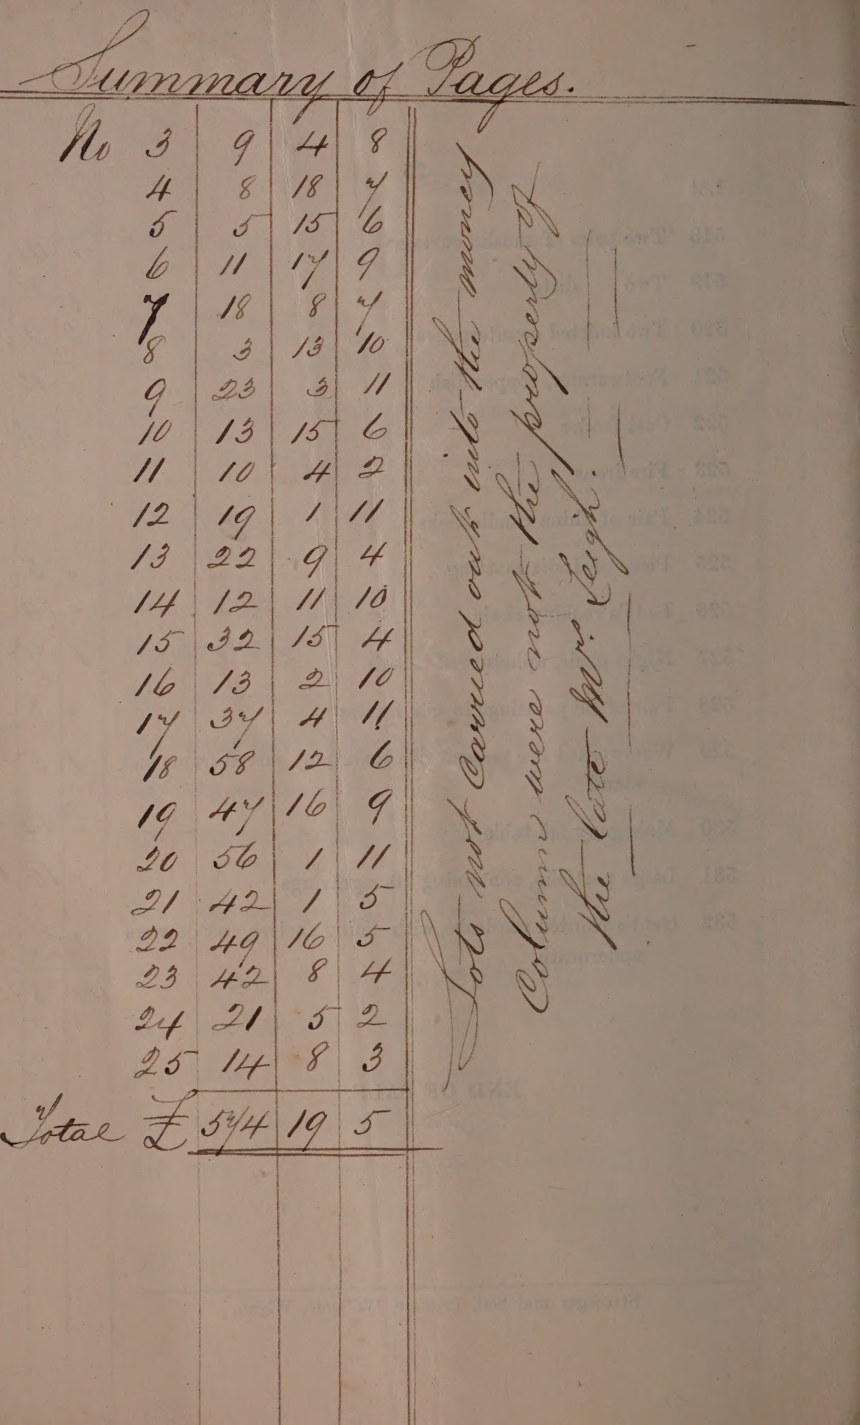 Summary of Pages.
No 3 9 4 8
4 8 18 7
5 5 15 6
6 11 17 9
7 18 8 7
8 3 13 10
9 23 3 11
10 13 15 6
11 10 4 2
12 19 1 11
13 22 9 4
14 12 11 10
15 32 15 4
16 13 2 10
17 37 4 11
18 58 12 6
19 47 16 9
20 56 1 11
21 42 1 5
22 49 16 5
23 42 8 4
24 21 5 2
25 14 8 3
Total £ 574 19 5
Lots not Carried out into the money
Column were not the property of
the late Mrs Leigh.